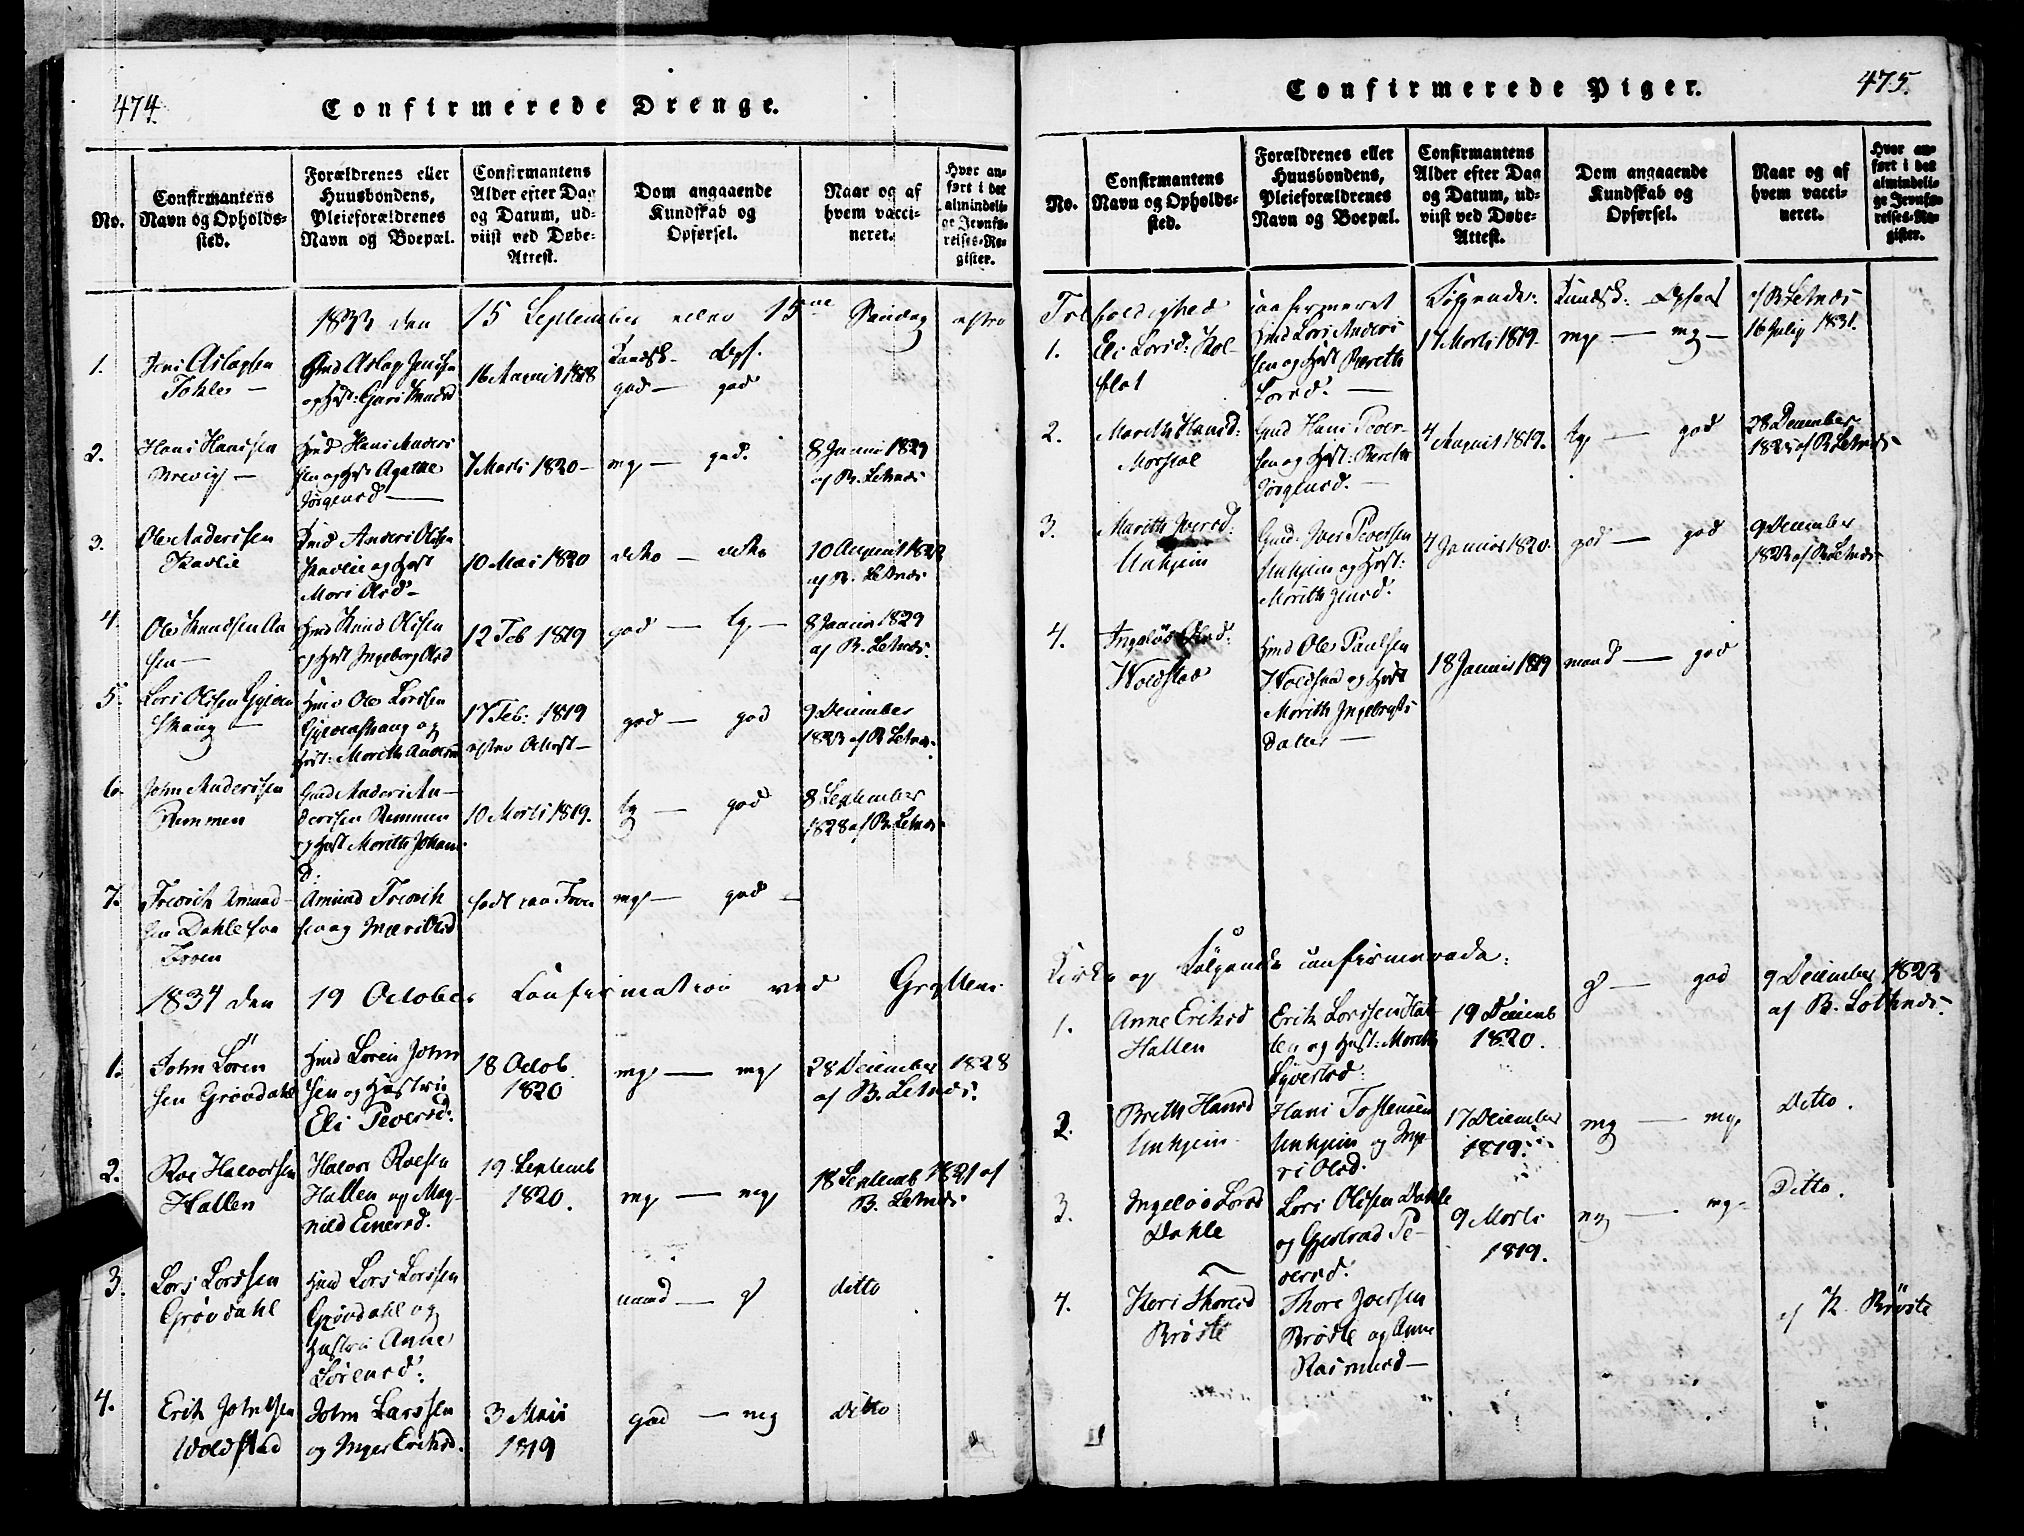 474.
Confirmerede Drenge.
No.
Confirmantens
Navn og Opholds-
sted.
Forældrenes eller
Huusbondens,
Pleieforældrenes
Navn og Boepæl.
Confirmantens
Alder efter Dag
og Datum, ud-
viist ved Døbe-
Attest.
Dom angaaende
Kundskab og
Opførsel.
Naar og af
hvem vacci-
neret.
Hvor an-
ført i det
almindeli-
ge Jevnfø-
relses-Re-
gister.
1833 den 15 September 15de Søndag
1.
Tokle
og Hst: Guri Knudsd
16 August 1818
god — god
2.
Hans Hansen
Brevig —
Gmd Hans Anders
sen og Hst Agathe
Jørgensd —
7 Marts 1820 —
mg — god.
8 Januar 1829
af B. Letnæs
3.
Ole Andersen
Skavlie
Anders Olsen
Skavlie og Hst
Mari Olsd —
10 Mai 1820
10 August 1823
af B. Letnæs
4.
Ole Knudsen Aa
sen —
Hmd Knud Olsen
og Hst Ingeborg Olsd
12 Feb 1819
god — tg —
8 Januar 1829
af B. Letnæs.
5.
Lars Olsen Gylden
skaug —
Hmd Ole Larsen
Gyldenskaug og
Hst: Marith Andersd
17 Feb: 1819
god — god
9 December
1823 af B Letnæs.
6.
John Andersen
Remmen
Gmd Anders An-
dersen Remmen
og Hst Marith Johans
d:
10 Marts 1819.
tg — god
8 September
1828 af B. Letnæs
7.
Fredrik Amund-
sen Dahle fra
Foren
Amund Fredrik
sen og Mari Olsd
mg — god —
1834 den 19 October Confirmation ved Gryttens
1.
John Søren
sen Grøvdahl
Hmd Søren John
sen og Hustrue
Eli Pedersd:
18 Octob.
1820
mg — mg
28 December 1828
af B. Letnæs.
2.
Roe Halvorsen
Hallen
Halvor Roesen
Hallen og Mag-
nild Einersd.
19 Septemb
1820.
mg — mg
18 Septemb 1821 af
B. Letnæs
3.
Lars Larssen
Grøvdahl
Hmd Lars Larssen
Grøvdahl og
Hustru Anne
Sörensd:
maad — g
ditto
4.
Erik Johnsen
Woldstad
John Larssen
og Inger Eriksd.
3 Mai
1819
god — mg
ditto
475.
Confirmerede Piger.
No.
Confirmantens
Navn og Opholds-
sted.
Forældrenes eller
Huusbondens,
Pleieforældrenes
Navn og Boepæl.
Confirmantens
Alder efter Dag
og Datum, ud-
viist ved Døbe-
Attest.
Dom angaaende
Kundskab og
Opførsel.
Naar og af
hvem vacci-
neret.
Hvor an-
ført i det
almindeli-
ge Jevnfø-
relses-Re-
gister.
Trefoldighed confirmeret Følgende: Kundsk: Opførs
af B Letnæs
1.
Eli Larsd: Kol-
flot
Hmd Lars Anders
sen og Hst Bereth
Larsd. —
17 Marts 1819.
mg — mg —
16 July 1831.
2.
Marith Hansd:
Morstøl
Gmd Hans Peder-
sen og Hst: Berethe
Jørgensd. —
4 August 1819.
tg — god
28 December
1825 af B. Letnæs
3.
Marith Iversd:
Unhjem
Gmd: Iver Pedersen
Unhjem og Hst:
Marith Jensd.
4 Januar 1820.
god — god
9 December
1823 af B. Letnæs
4.
Ingeløv Olsd:
Woldstad
Hmd Ole Paulsen
Woldstad og Hst
Marith Ingebrigts
datter —
18 Januar 1819
maad — god
Kirke og Følgende confirmerede:
1.
Anne Eriksd
Hallen
Erik Larssen Hal-
len og Hust: Marith
Syversd:
19 Decemb
1820.
g — god
9 December 1823
af B. Letnæs.
2.
Breth Hansd
Unhjem
Hans Tostensen
Unhjem og Inge-
ri Olsd.
17 December
1819.
mg — mg
Ditto.
3.
Ingeløv Larsd
Dahle
Lars Olsen Dahle
og Gjertrud Pe-
dersd:
9 Marts
1819.
mg — mg
Ditto.
4.
Kari Thoresd
Brøste
Thore Iversen
Brøste og Anne
Rasmusd —
af K. Brøste